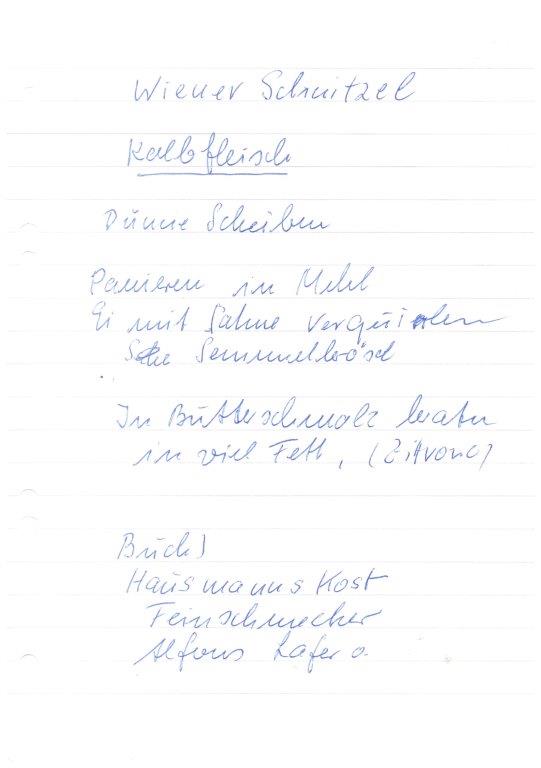 Wiener Schnitzel
Kalbfleisch
Dünne Scheiben
Panieren in Mehl
Ei mit Sahne verquirlen
Semmelbrösel
In Butterschmalz braten
in viel Fett, (Zitrone)
Buch)
Hausmanns Kost
Feinschmecker
Alfons Lafer o.